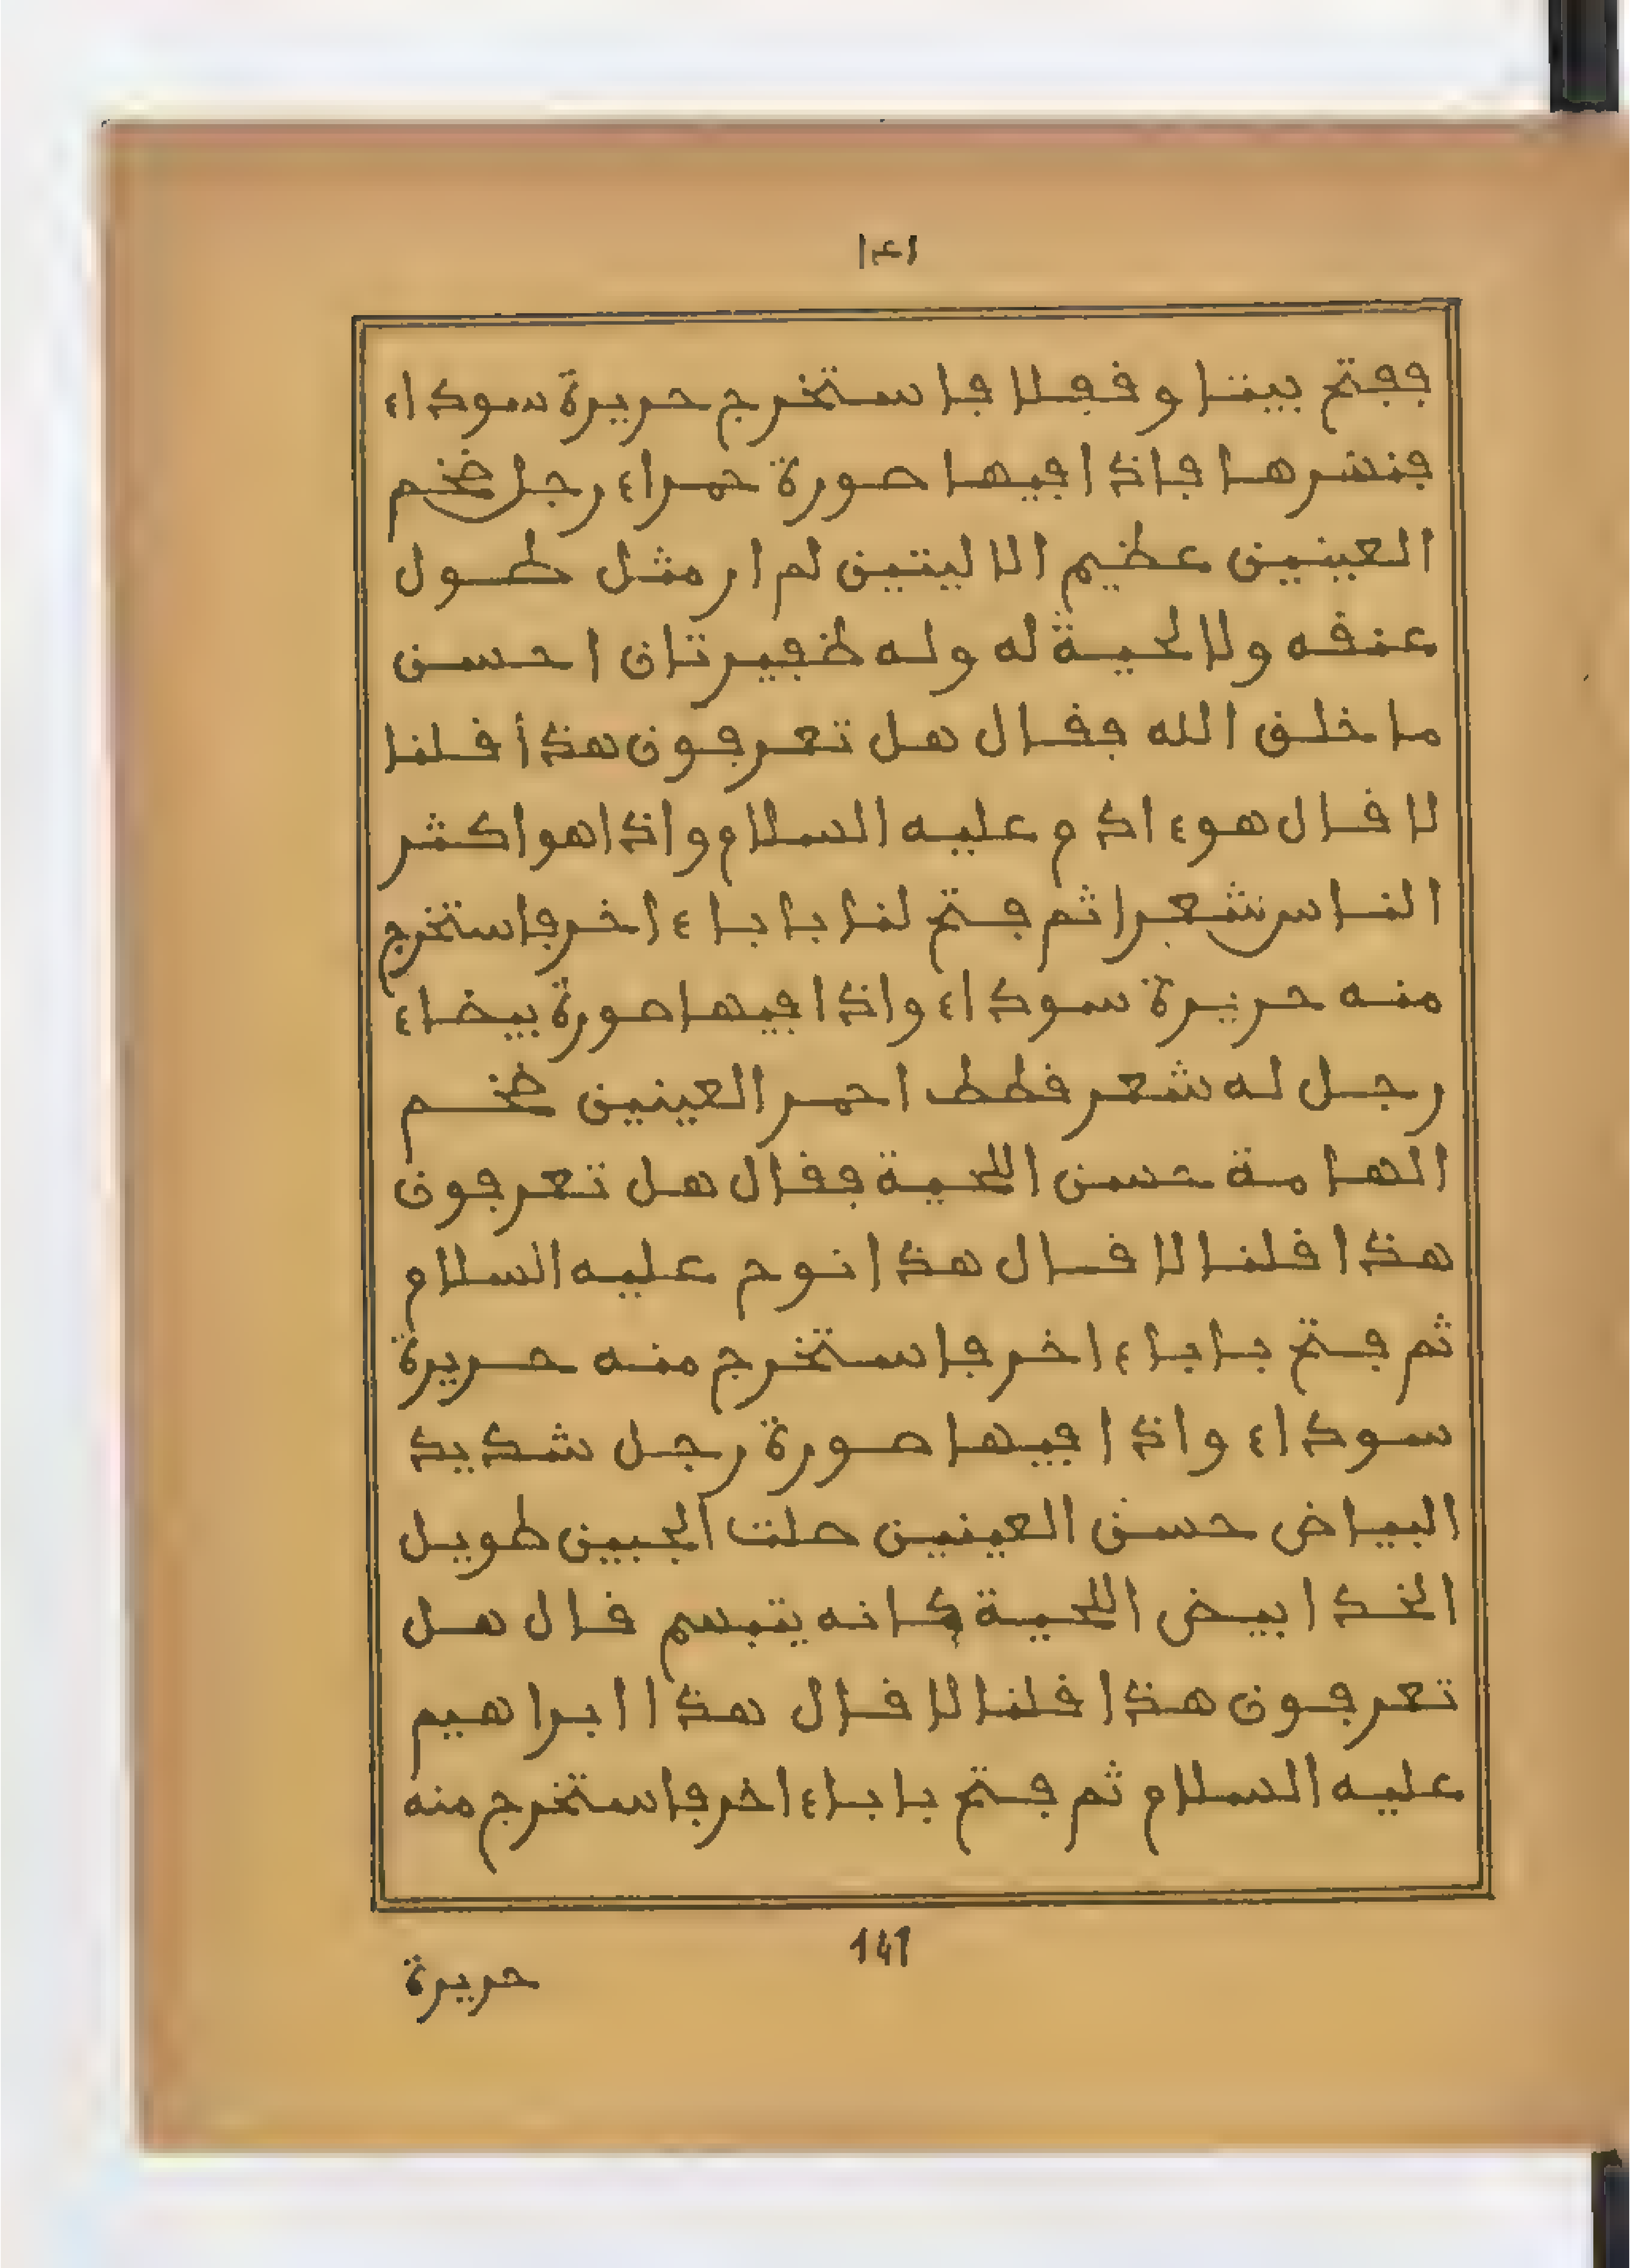 ١٤١
ففتح بيتا وقفلا فاستخرج حريرة سوداء
فنشرها فإذا فيها صورة حمراء رجل ضخم
العينين عظيم الاليتين لم ار مثل طول
عنقه ولا لحية له وله ظفيرتان احسن
ما خلق الله فقال هل تعرفون هذا قلنا
لا قال هو ءادم عليه السلام واذا هو اكثر
الناس شعرا ثم فتح لنا بابا ءاخر فاستخرج
منه حريرة سوداء واذا فيها صورة بيضاء
رجل له شعر قطط احمر العينين ضخم
الهامة حسن اللحية فقال هل تعرفون
هذا قلنا لا قال هذا نوح عليه السلام
ثم فتح بابا ءاخر فاستخرج منه حريرة
سوداء واذا فيها صورة رجل شديد
البياض حسن العينين صلت الجبين طويل
الخد ابيض اللحية كانه يتبسم قال هل
تعرفون هذا قلنا لا قال هذا ابراهيم
عليه السلام ثم فتح بابا ءاخر فاستخرج منه
141
حريرة